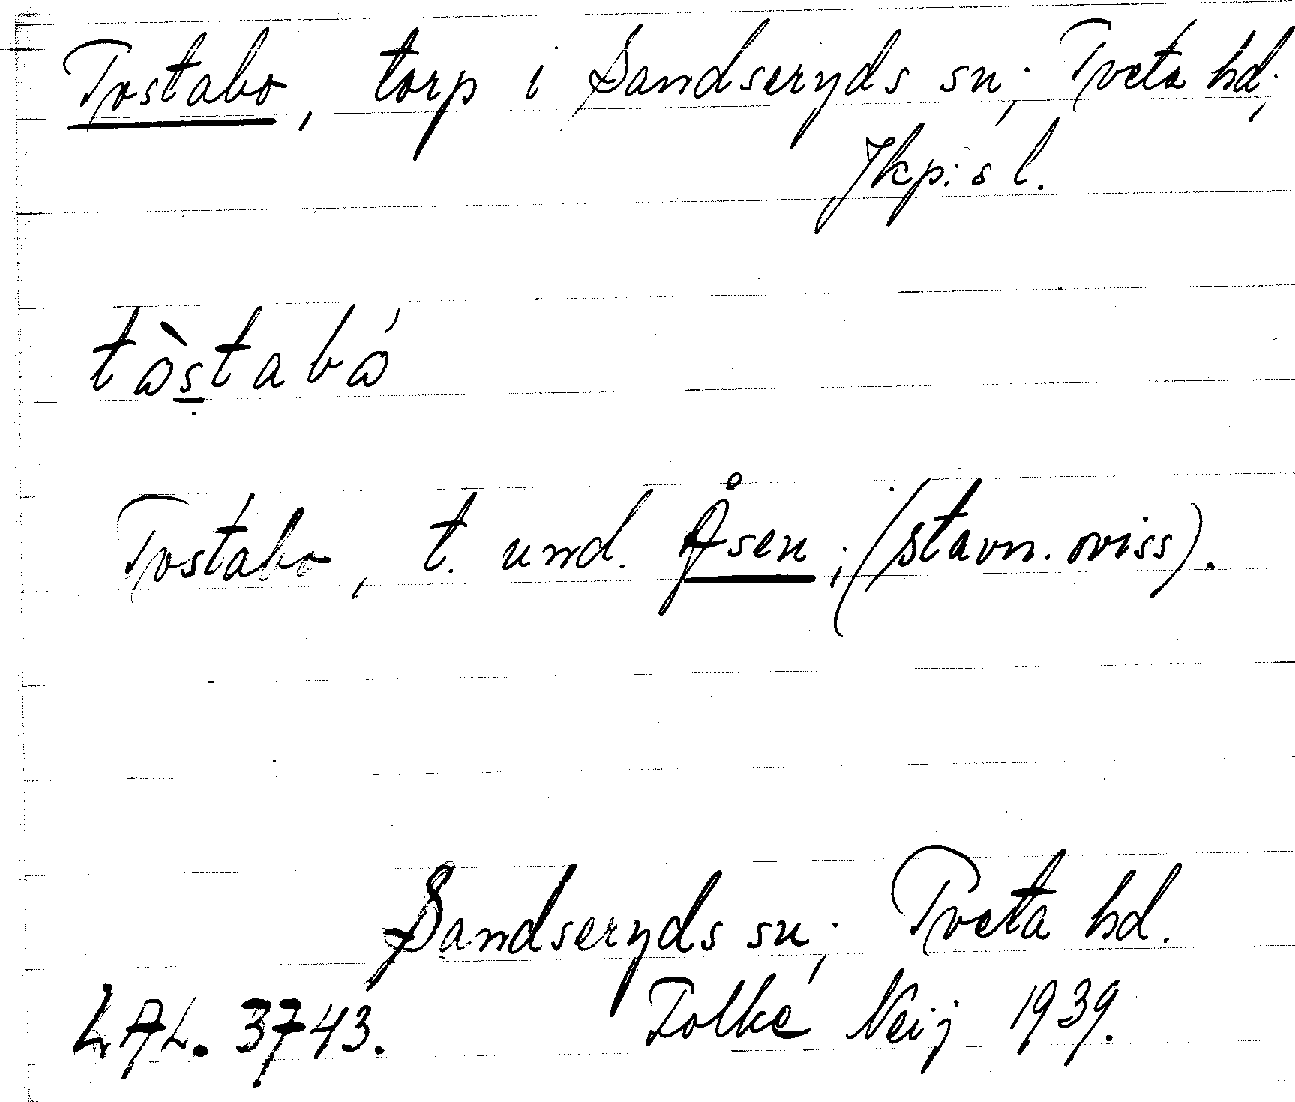 Tostabo, torp i Sandseryds sn; Tveta hd;
Jkp:s l.
tòstabó
Tostabo, t. und. Åsen; (stavn. oviss).
Sandseryds sn; Tveta hd.
L.A.L. 3743. Folke Neij 1939.